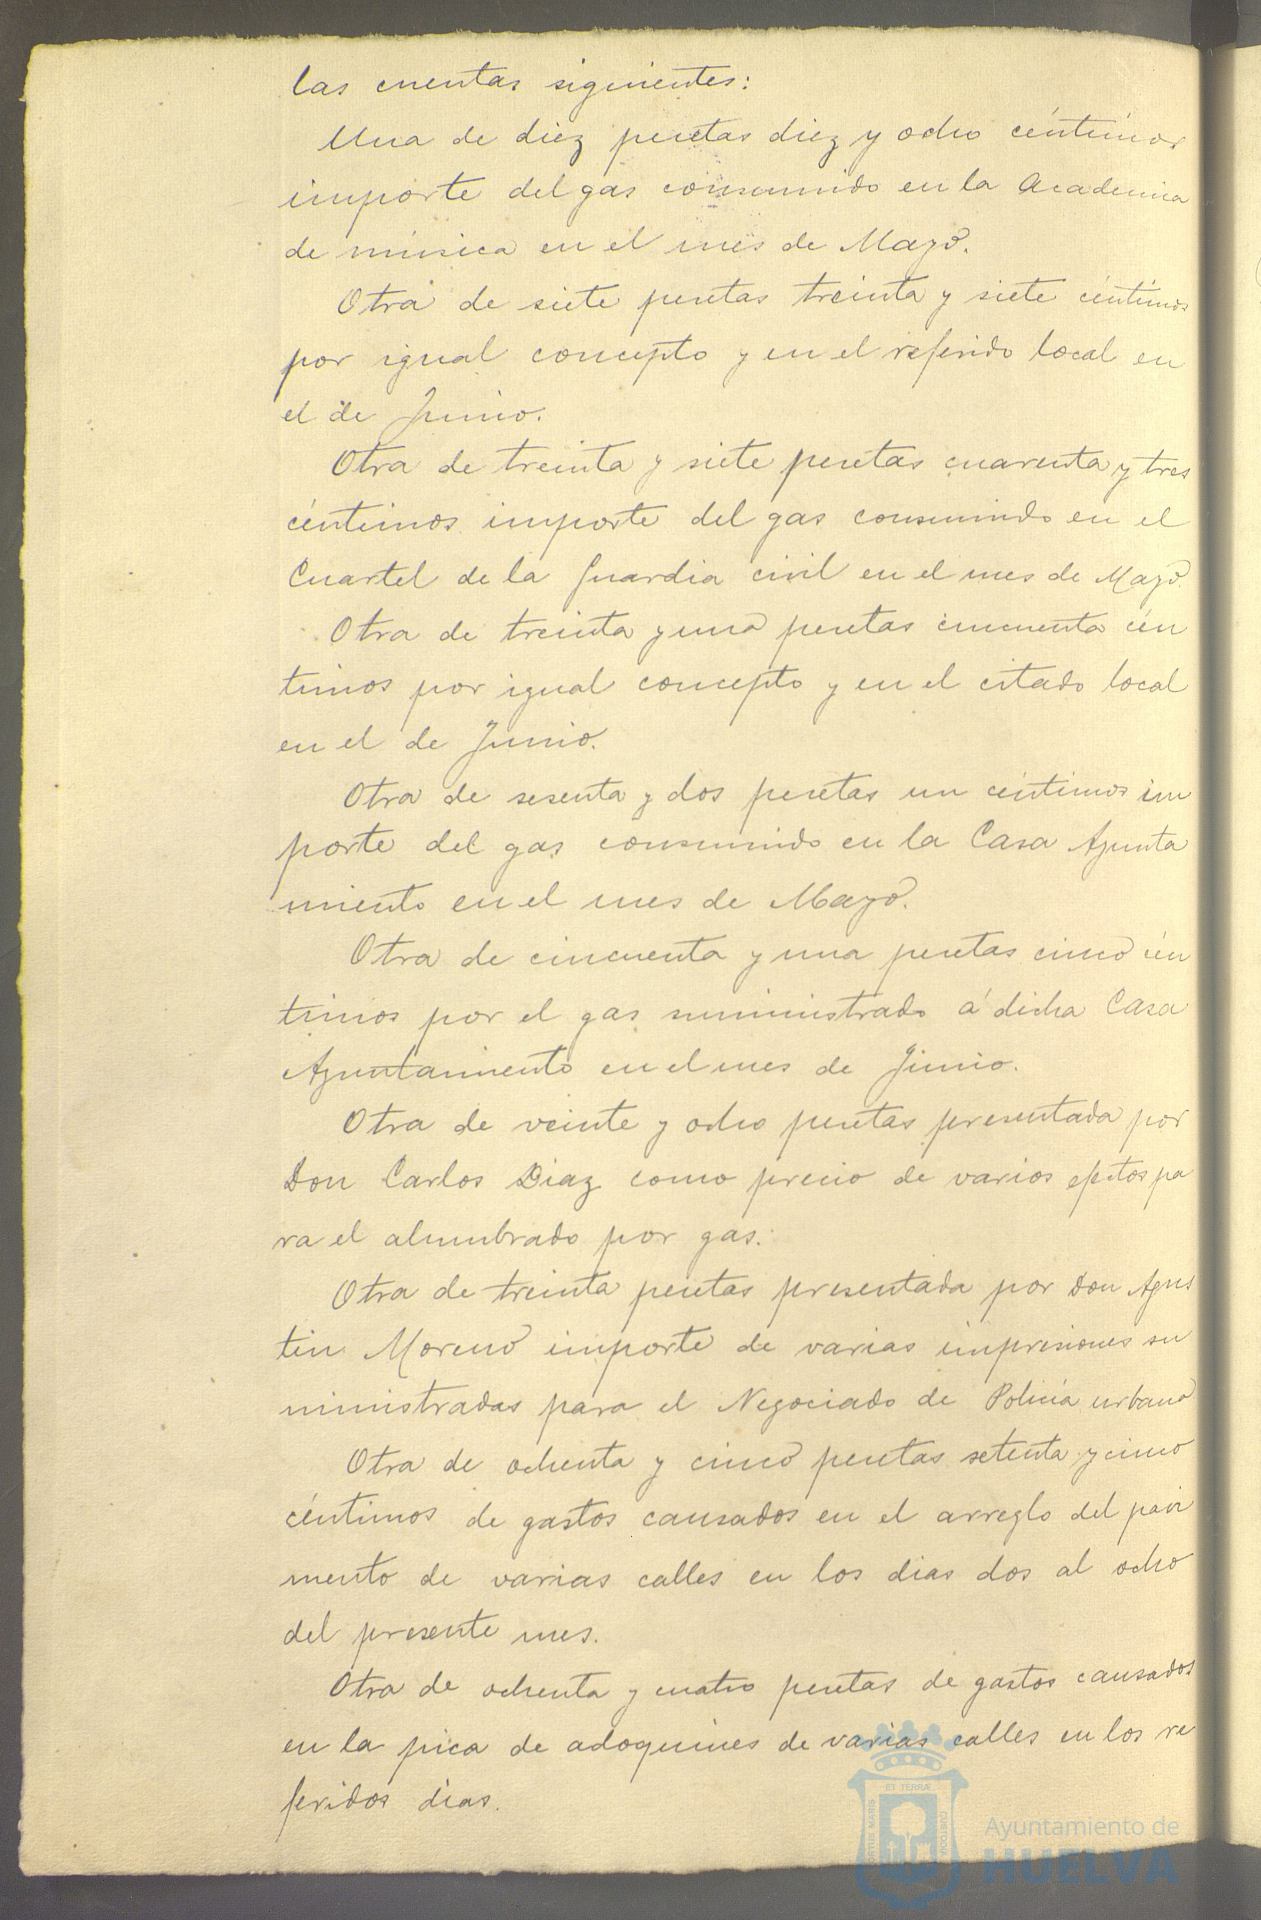 las cuentas siguientes:
Una de diez pesetas diez y ocho céntimos
importe del gas consumido en la Academia
de música en el mes de Mayo.
Otra de siete pesetas treinta y siete céntimos
por igual concepto y en el referido local en
el de Junio.
Otra de treinta y siete pesetas cuarenta y tres
céntimos importe del gas consumido en el
Cuartel de la Guardia civil en el mes de Mayo.
Otra de treinta y una pesetas cincuenta cén
timos por igual concepto y en el citado local
en el de Junio.
Otra de sesenta y dos pesetas un céntimos im
porte del gas consumido en la Casa Ayunta
miento en el mes de Mayo.
Otra de cincuenta y una pesetas cinco cén
timos por el gas suministrado á dicha Casa
Ayuntamiento en el mes de Junio.
Otra de veinte y ocho pesetas presentada por
Don Carlos Diaz como precio de varios efectos pa
ra el alumbrado por gas.
Otra de treinta pesetas presentada por Don Agus
tin Moreno importe de varias impresiones su
ministradas para el Negociado de Policía urbana
Otra de ochenta y cinco pesetas setenta y cinco
céntimos de gastos causados en el arreglo del pavi
mento de varias calles en los dias dos al ocho
del presente mes.
Otra de ochenta y cuatro pesetas de gastos causados
en la pica de adoquines de varias calles en los re
feridos dias.
PORTUS MARIS ET TERRAE CUSTODIA
Ayuntamiento de
HUELVA